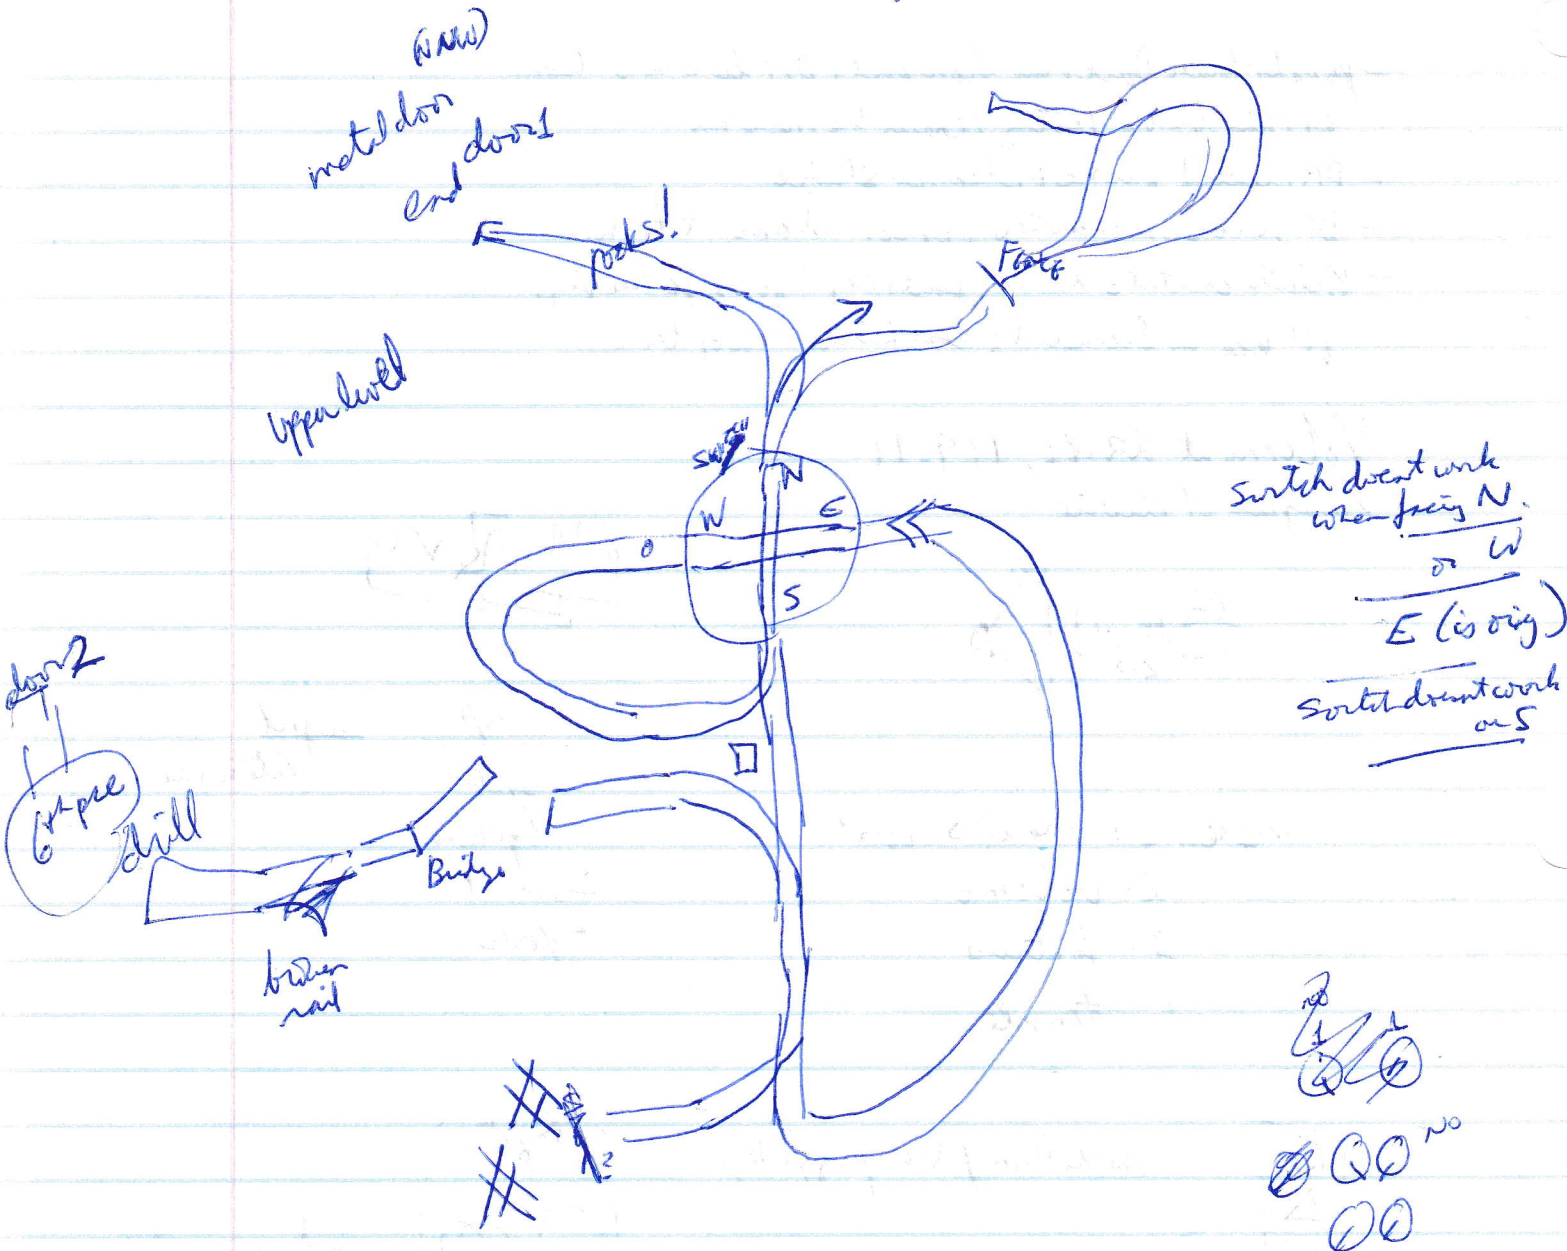 metal door
end door1
rocks!
Fence
upper level
N
W
E
S
Switch doesnt work
when facing N.
or W
E (is orig)
Switch doesnt work
on S
door2
drill
Bridge
broken
rail
NO